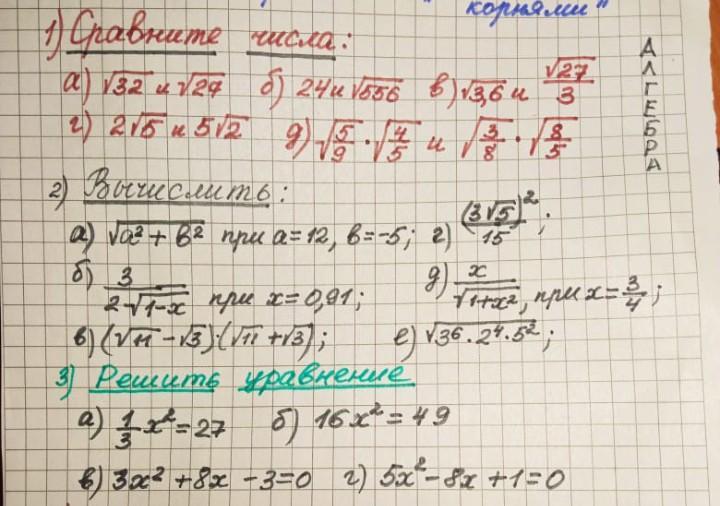 корнями"
1) Сравните числа:
а) √32 и √27 б) 24 и √556 в) √3,6 и √27/3
г) 2√5 и 5√2 д) √5/9 · √4/5 и √3/8 · √8/5
АЛГЕБРА
2) Вычислить:
а) √a² + b² при a = 12, b = -5; г) (3√5)²/15;
б) 3/2√1-x при x = 0,91; д) x/√1+x², при x = 3/4;
в) (√11 - √3)·(√11 + √3); е) √3⁶·2⁴·5²;
3) Решить уравнение
а) 1/3 x² = 27 б) 16x² = 49
в) 3x² + 8x - 3 = 0 г) 5x² - 8x + 1 = 0